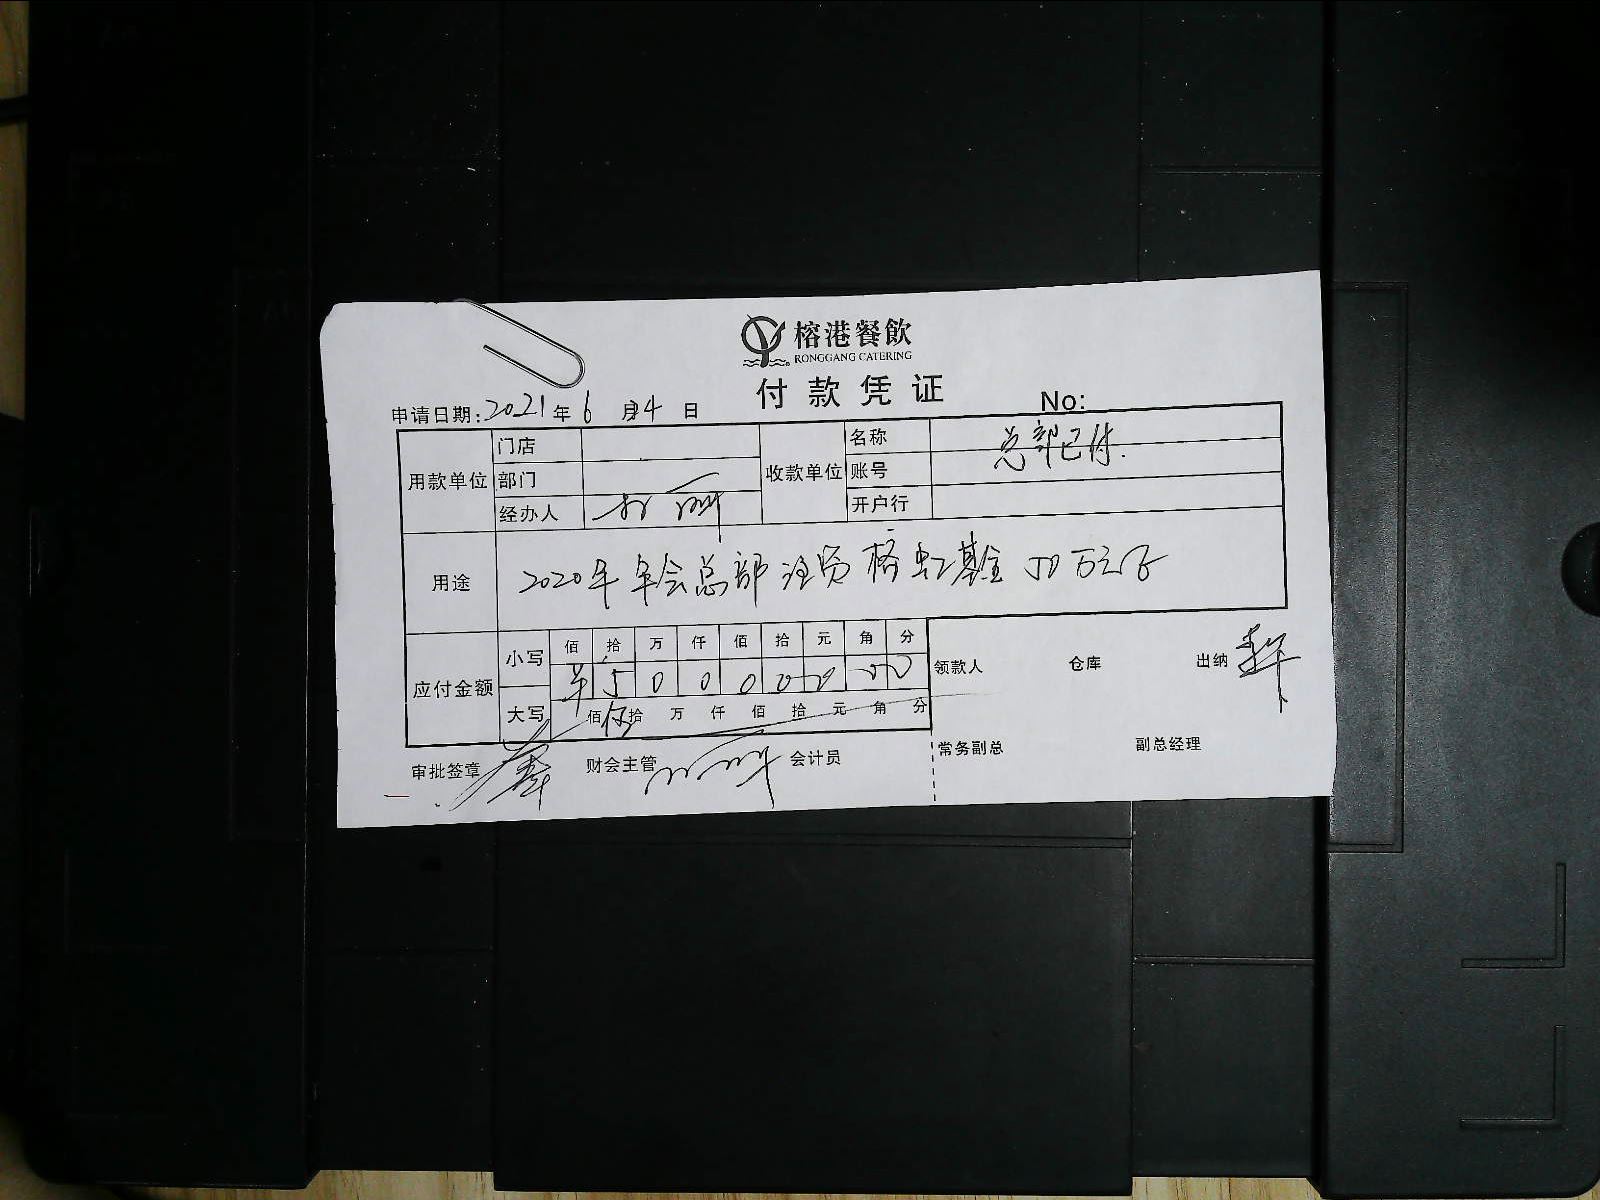 榕港餐飲
RONGGANG CATERING
付款凭证
申请日期:2021年6月4日 No:
用款单位 门店 收款单位 名称 总部已付.
部门 账号
经办人 开户行
用途 2020年年会总部注资榕虹基金50万元正
应付金额 小写 佰 拾 万 仟 佰 拾 元 角 分
羊 5 0 0 0 0 0 0 0
大写 伍 佰 拾 万 仟 佰 拾 元 角 分
领款人 仓库 出纳
审批签章 财会主管 会计员 常务副总 副总经理